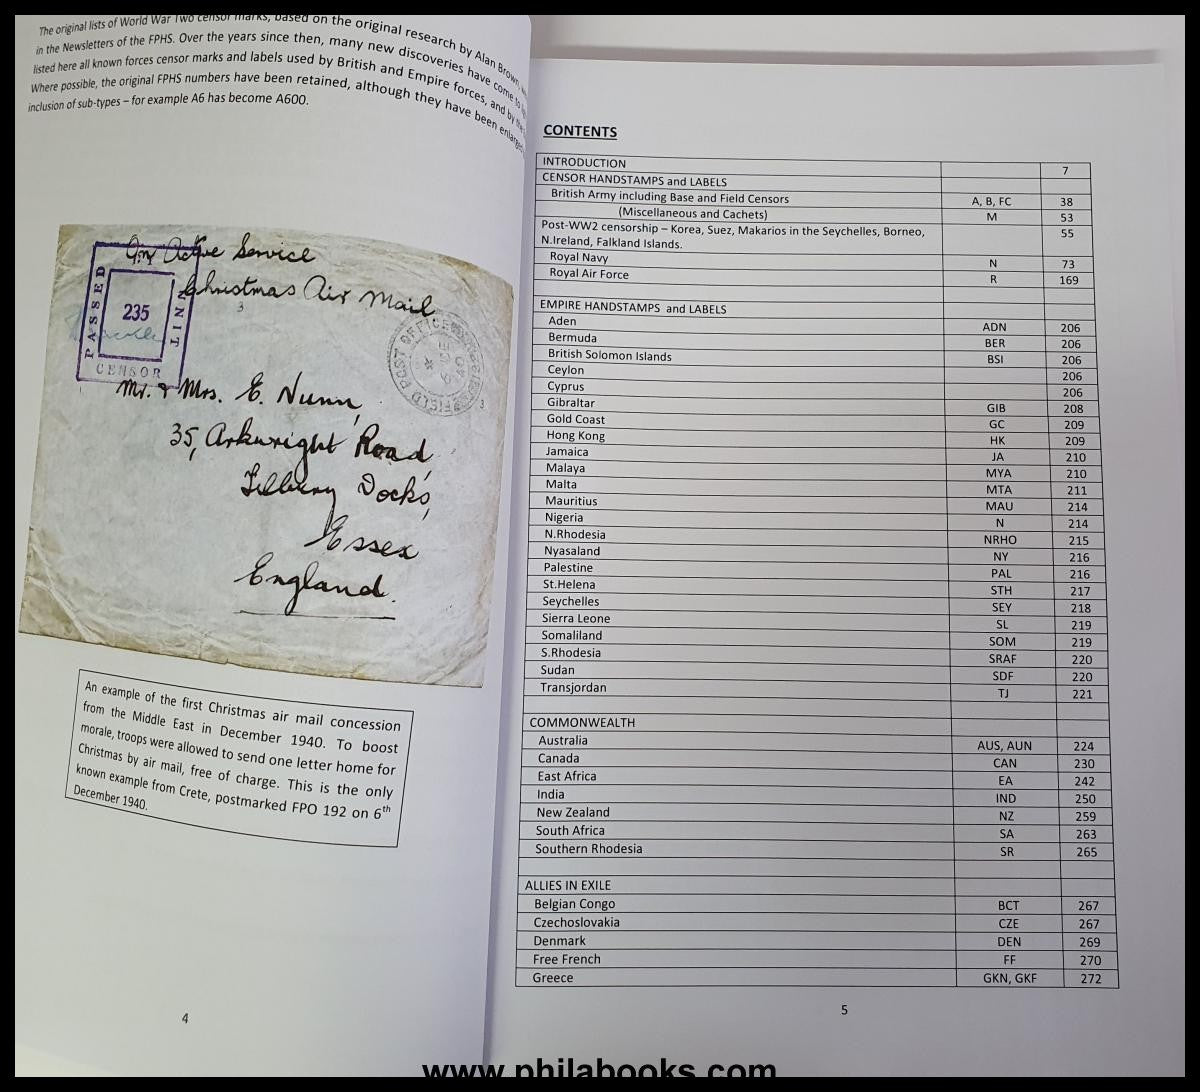 The original lists of World War Two censor marks, based on the original research by Alan Brown,
in the Newsletters of the FPHS. Over the years since then, many new discoveries have come to
listed here all known forces censor marks and labels used by British and Empire forces, and by the
Where possible, the original FPHS numbers have been retained, although they have been enlarged
inclusion of sub-types – for example A6 has become A600.
On Active Service
Christmas Air Mail
PASSED
235
UNIT
CENSOR
3
FIELD POST OFFICE
6 DE
40
3
Mr. & Mrs. E. Nunn,
35, Arkwright Road,
Tilbury Docks,
Essex
England.
An example of the first Christmas air mail concession
from the Middle East in December 1940. To boost
morale, troops were allowed to send one letter home for
Christmas by air mail, free of charge. This is the only
known example from Crete, postmarked FPO 192 on 6th
December 1940.
4
CONTENTS
INTRODUCTION 7
CENSOR HANDSTAMPS and LABELS
British Army including Base and Field Censors A, B, FC 38
(Miscellaneous and Cachets) M 53
Post-WW2 censorship – Korea, Suez, Makarios in the Seychelles, Borneo, 55
N.Ireland, Falkland Islands.
Royal Navy N 73
Royal Air Force R 169
EMPIRE HANDSTAMPS and LABELS
Aden ADN 206
Bermuda BER 206
British Solomon Islands BSI 206
Ceylon 206
Cyprus 206
Gibraltar GIB 208
Gold Coast GC 209
Hong Kong HK 209
Jamaica JA 210
Malaya MYA 210
Malta MTA 211
Mauritius MAU 214
Nigeria N 214
N.Rhodesia NRHO 215
Nyasaland NY 216
Palestine PAL 216
St.Helena STH 217
Seychelles SEY 218
Sierra Leone SL 219
Somaliland SOM 219
S.Rhodesia SRAF 220
Sudan SDF 220
Transjordan TJ 221
COMMONWEALTH
Australia AUS, AUN 224
Canada CAN 230
East Africa EA 242
India IND 250
New Zealand NZ 259
South Africa SA 263
Southern Rhodesia SR 265
ALLIES IN EXILE
Belgian Congo BCT 267
Czechoslovakia CZE 267
Denmark DEN 269
Free French FF 270
Greece GKN, GKF 272
5
www.philabooks.com